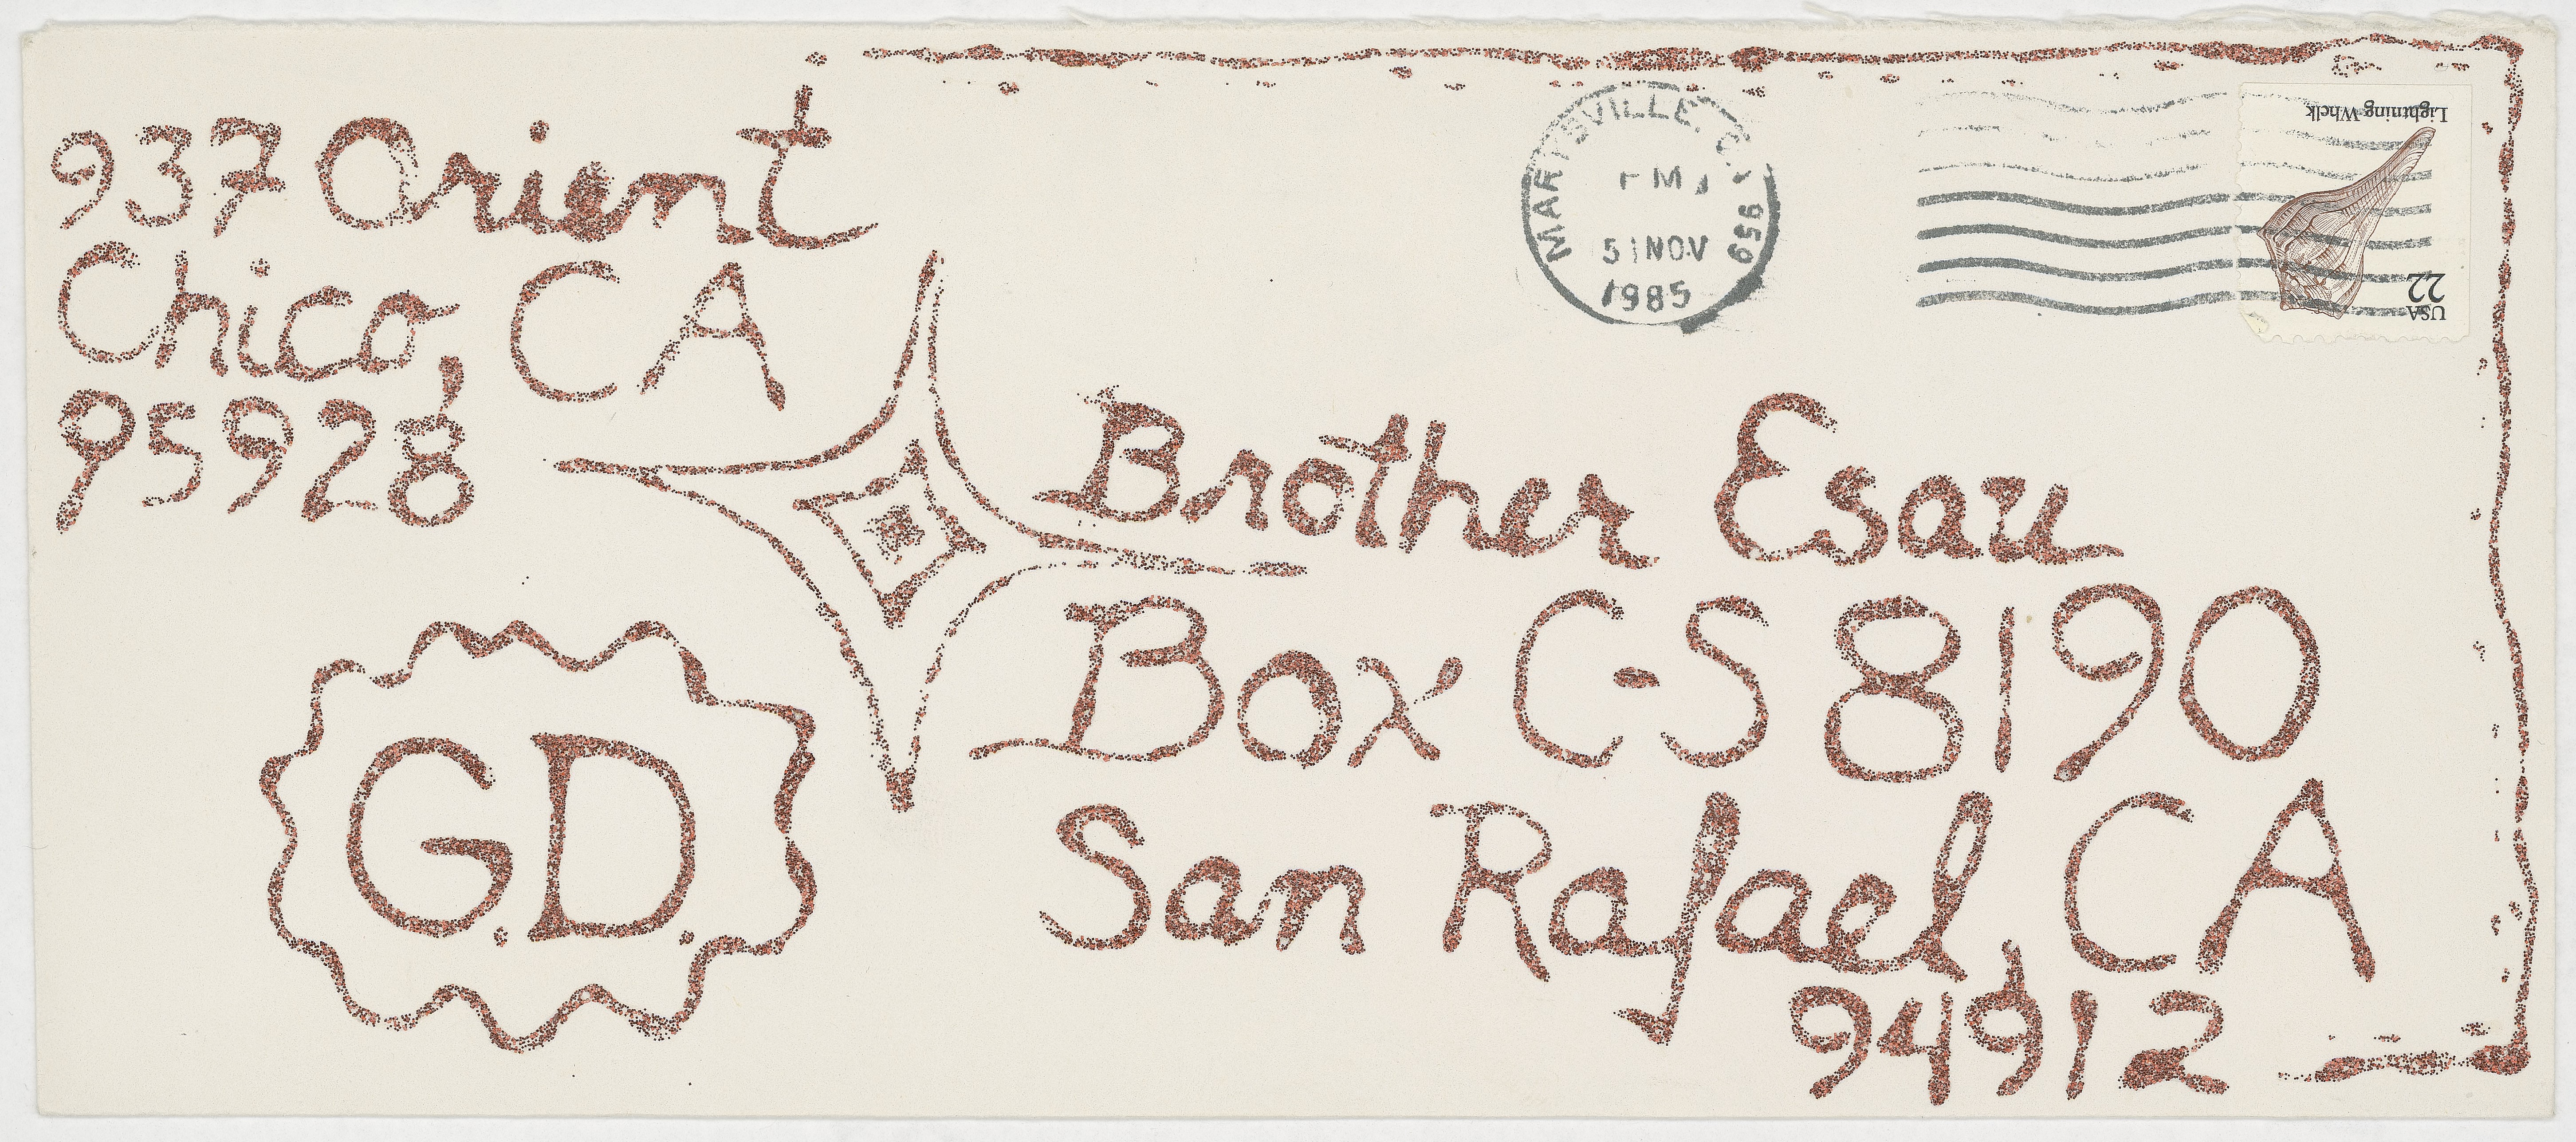 937 Orient
Chico, CA
95928
MARYSVILLE, CA 959
PM
5 NOV
1985
Lightning Whelk
22
USA
Brother Esau
Box C-S 8190
San Rafael, CA
94912
G.D.